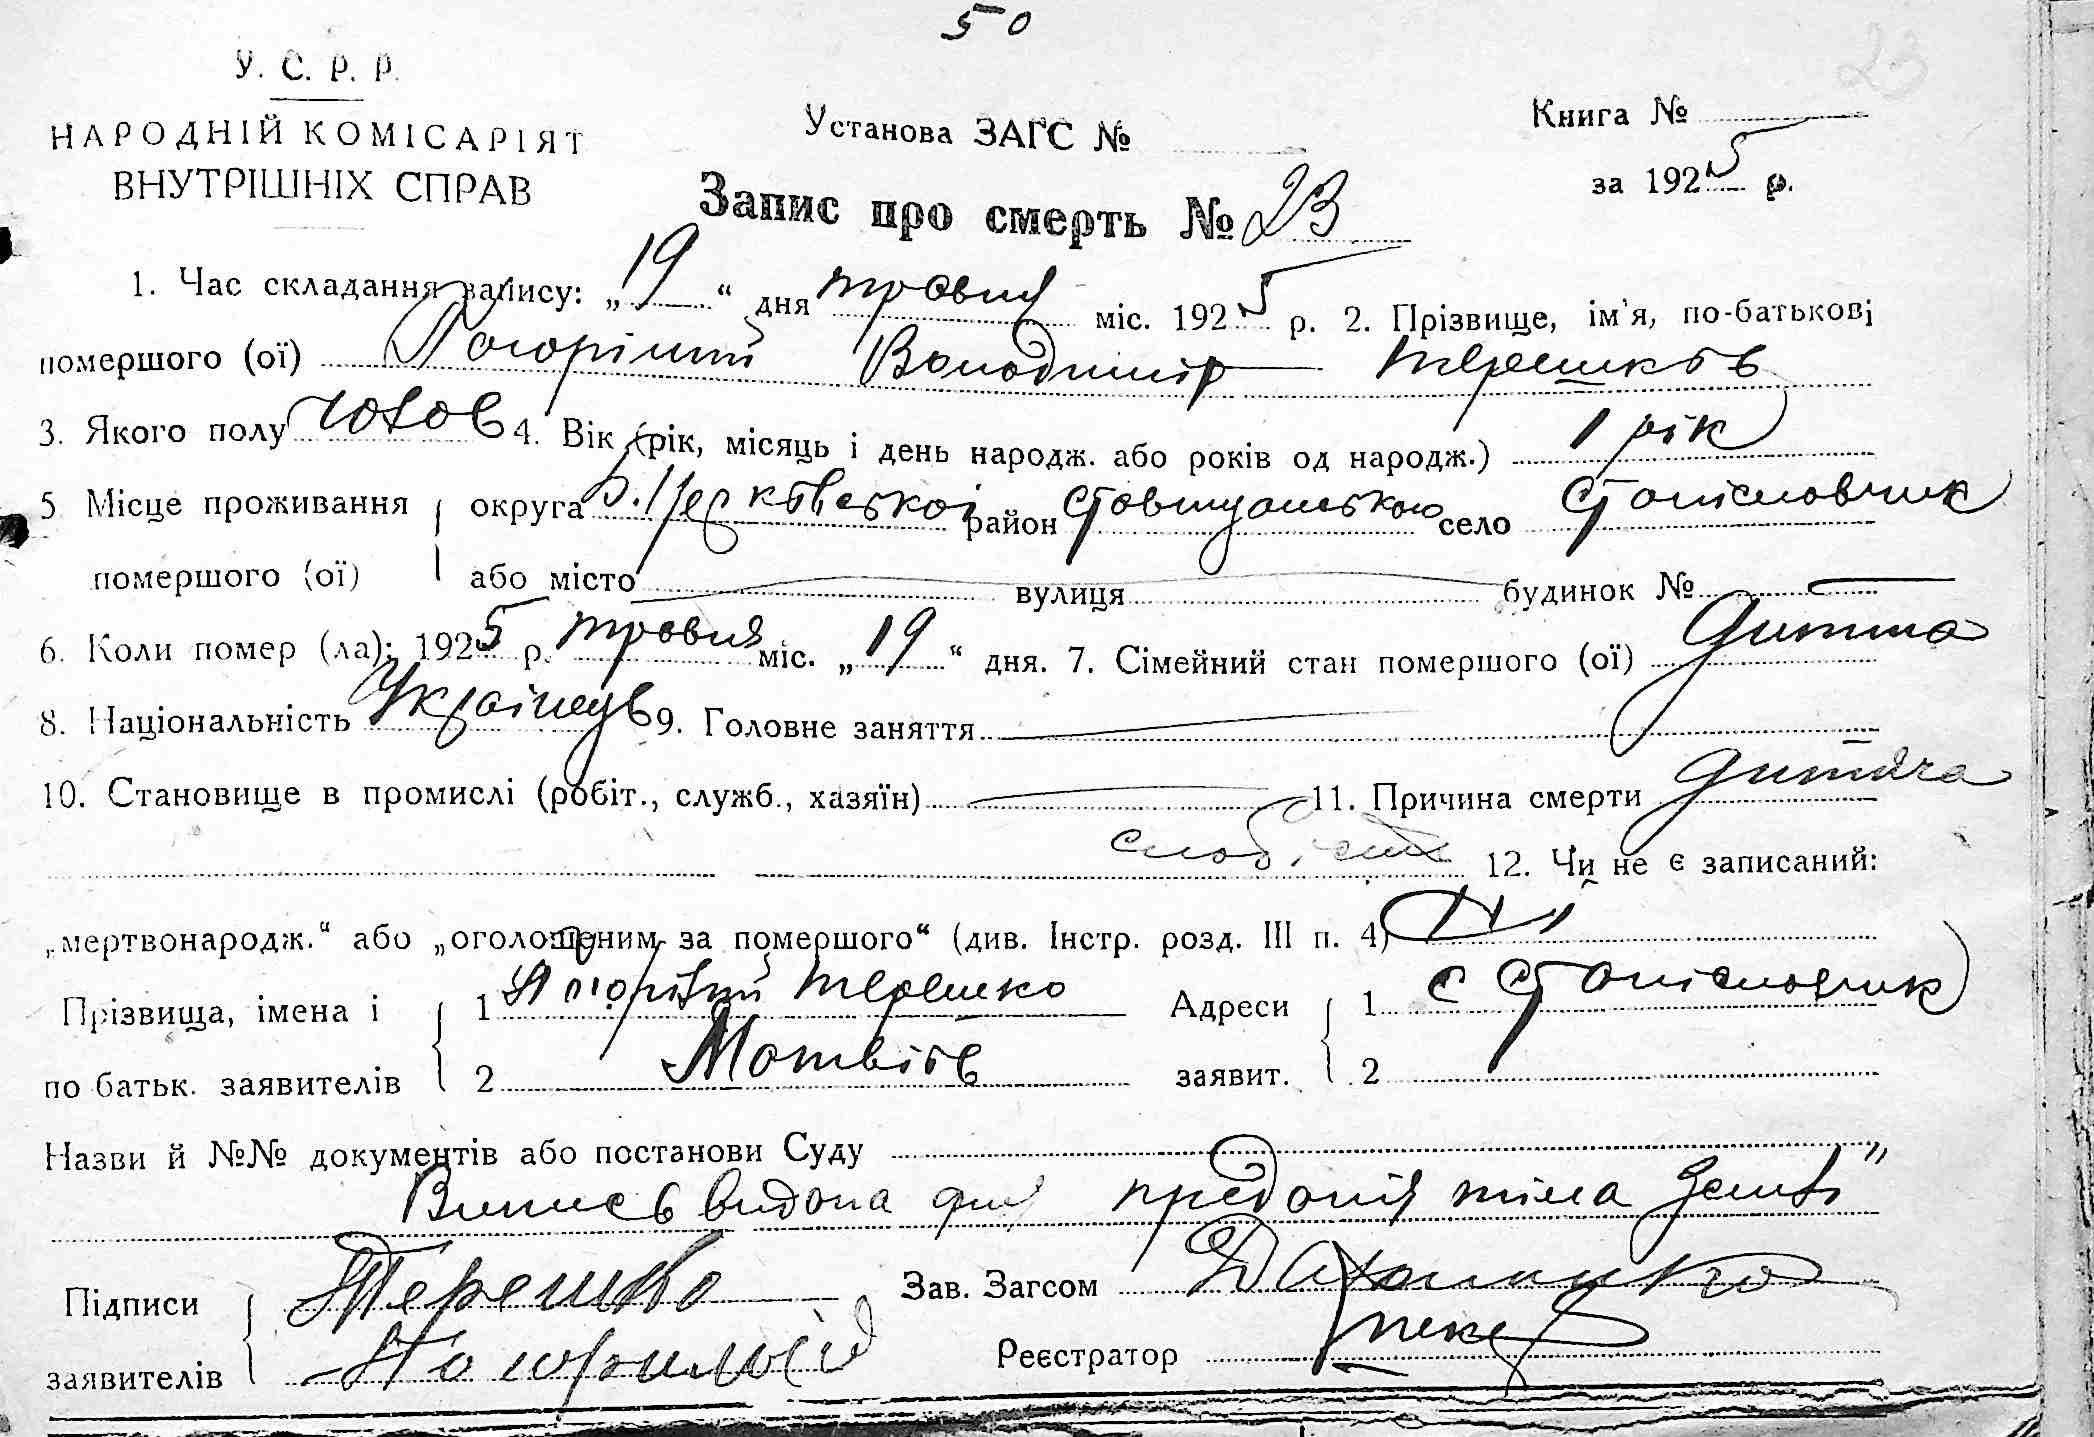 50
23
У. С. Р. Р.
НАРОДНІЙ КОМІСАРІЯТ
ВНУТРІШНІХ СПРАВ
Установа ЗАГС №
Книга №
за 1925 р.
Запис про смерть № 23
1. Час складання запису: „19“ дня травня міс. 1925 р. 2. Прізвище, ім'я, по-батькові
помершого (ої) Погорілий Володимір Терешков
3. Якого полу чолов 4. Вік (рік, місяць і день народж. або років од народж.) 1 рік
5 Місце проживання округа Б. Церковської район Ставищанського село Станіславчик
помершого (ої) або місто вулиця будинок №
6. Коли помер (ла): 1925 р. травня міс. „19“ дня. 7. Сімейний стан помершого (ої) дитина
8. Національність Українець 9. Головне заняття
10. Становище в промислі (робіт., служб., хазяїн) 11. Причина смерти дитяча
слабість 12. Чи не є записаний:
„мертвонародж.“ або „оголошеним за помершого“ (див. Інстр. розд. III п. 4) Ні
Прізвища, імена і 1 Погорілий Терешко Адреси 1 с Станіславчик
по батьк. заявителів 2 Матвіїв заявит. 2
Назви й №№ документів або постанови Суду
Випись видана для предания тіла землі"
Підписи Терешко Зав. Загсом
заявителів Погорилий Реєстратор